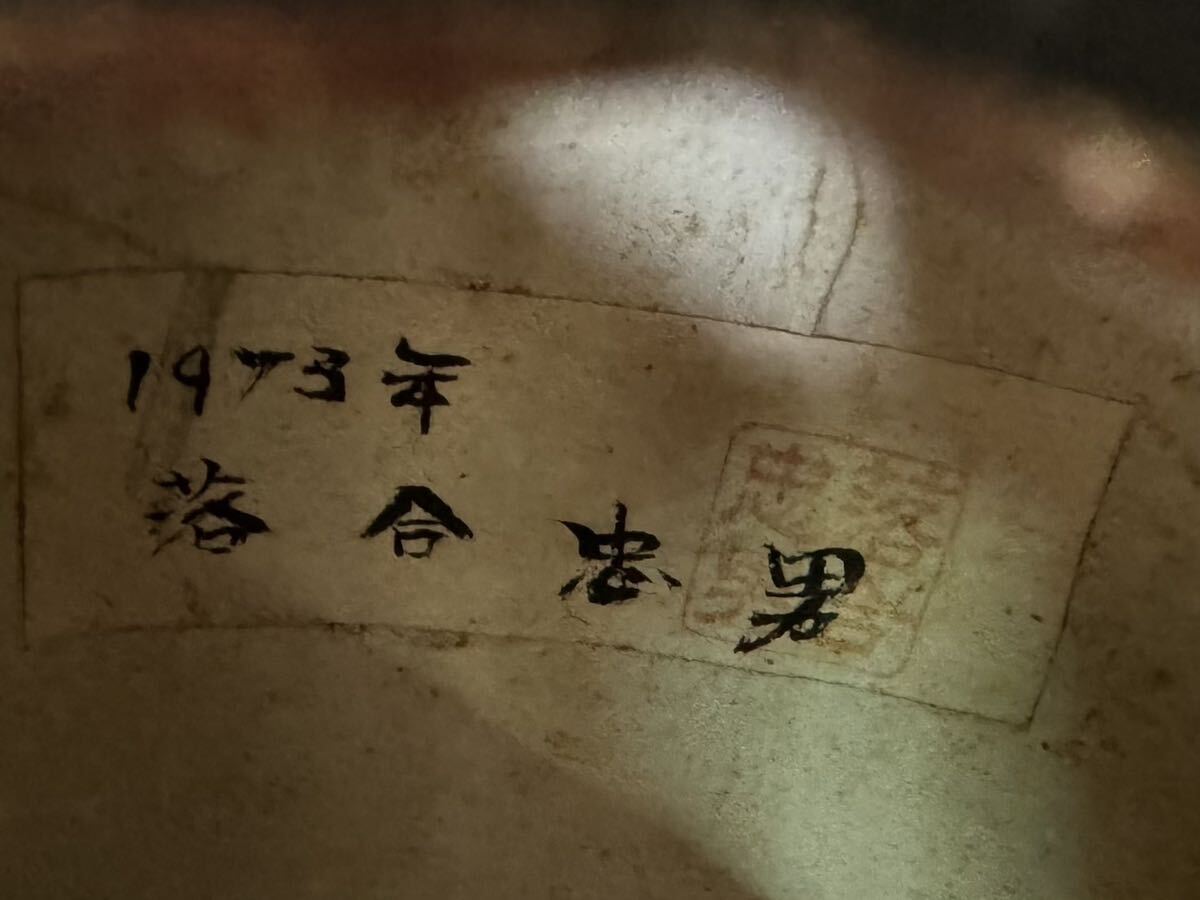 1973年
落合忠男